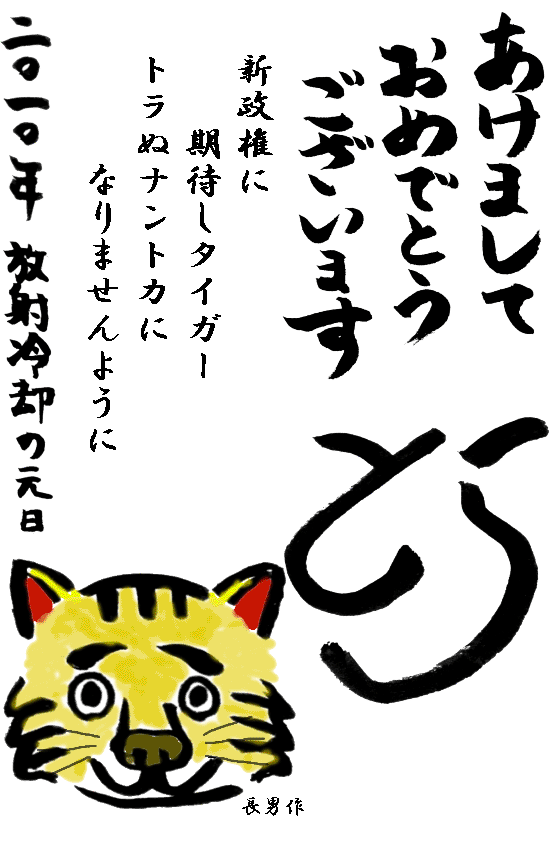 あけまして
おめでとう
ございます
とら
新政権に
期待しタイガー
トラぬナントカに
なりませんように
二〇一〇年 放射冷却の元日
長男作